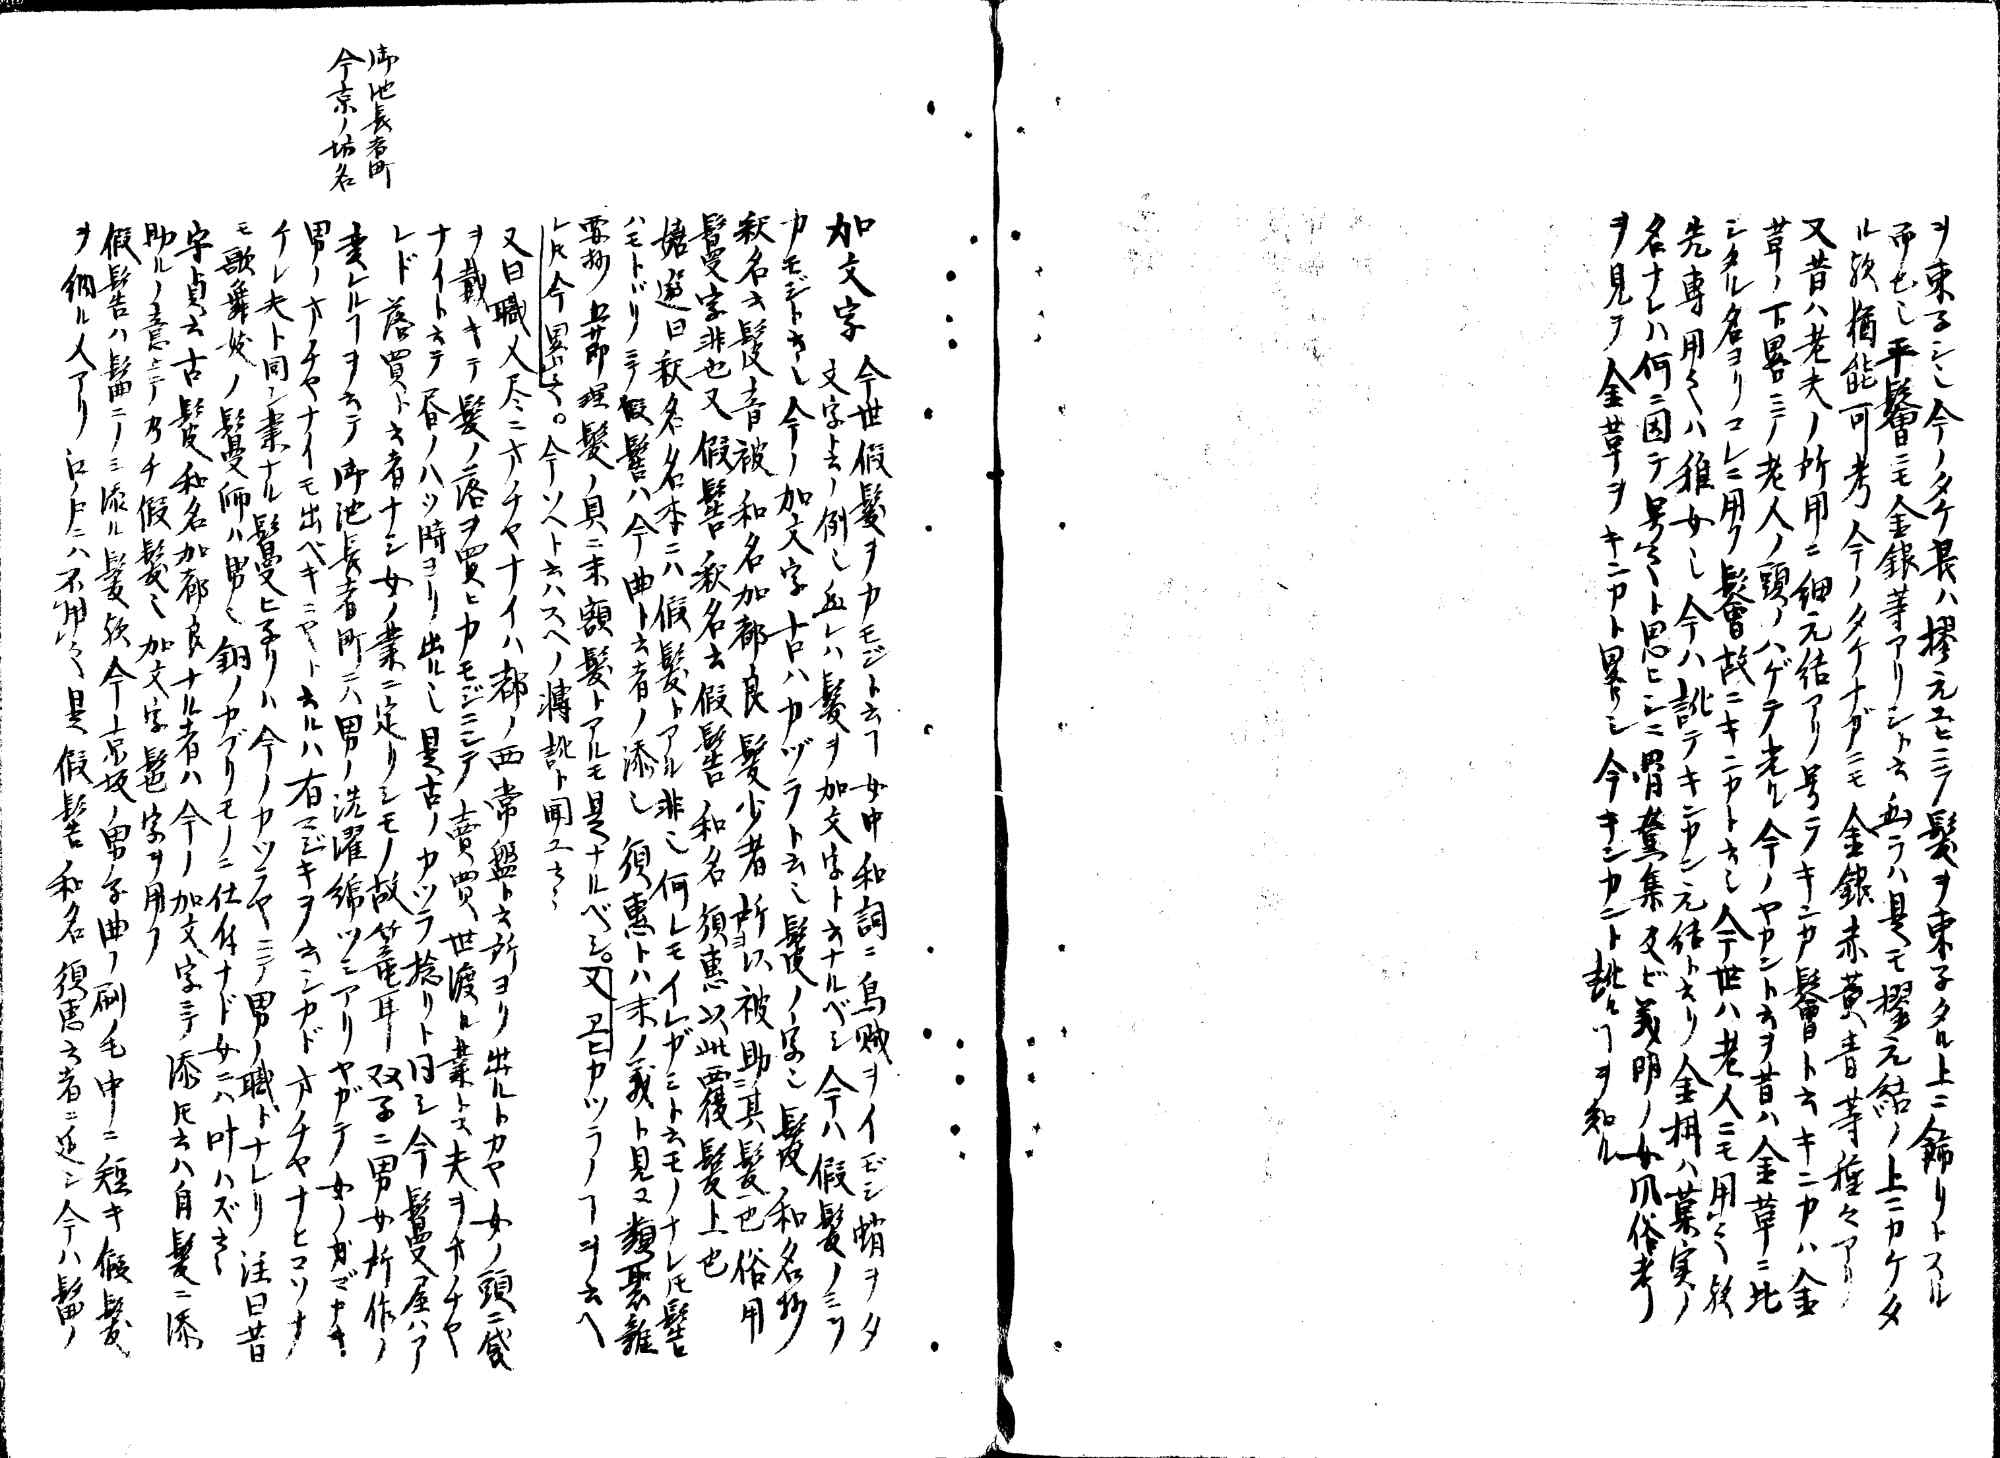 ヲ束子シ也今ノタケ長ハ摎元ユヒニテ髪ヲ束子タル上ニ飾リトスル
而已也平鬠ニモ金銀等アリシト云
ル欤猶能可考今ノタケナガニモ金銀赤黄青等種々アリ
又昔ハ老夫ノ所用ニ細元結アリ号テキンカ鬠ト云キニカハ金
草ノ下畧ニテ老人ノ頭ノハゲテ光ル今ノヤカント云ヲ昔ハ金草ニ比
シタル名ヨリコレニ用フ鬠故ニキニカト云也今世ハ老人ニモ用之欤
先専用之ハ稚女也今ハ訛テキンカン元結ト云リ金柑ハ菓実ノ
名ナレハ何ニ因テ号之ト思ヒシニ骨董集及ビ美明ノ女爪俗考
ヲ見テ金草ヲキニカト畧シ今キンカント訛レルヿヲ知ル
加文字 今世假髪ヲカモジト云フ女中和詞ニ烏賊ヲイモジ蛸ヲタ
文字ト云ノ例也
カモジト云也今ノ加文字古ハカヅラト云シ髲ノ字也髲和名抄
釈名云髲音被和名加都良髪少者所以被助其髪也俗用
鬘字非也又假髻釈名云假髻和名須恵以此覆髪上也
嬉遊曰釈名名本ニハ假髪トアル非也何レモイレガミト云モノナレ𪜈髻
ハモトドリニテ假髻ハ今曲ト云者ノ添也須恵トハ末ノ義ト見ユ類聚雜
要抄五莭理髪ノ具ニ末額髪トアルモ是ナルベシ。又ヱヒカツラノヿヲ云ヘ
レ𪜈今畧之。今ソヘト云ハスヘノ轉訛ト聞ユ云々
又曰職人尽ニオチヤナイハ都ノ西常盤ト云所ヨリ出ルトカヤ女ノ頭ニ袋
ヲ戴キテ髪ノ落ヲ買ヒカモジニシテ賣買世渡ル業ト又夫ヲオチヤ
ナイト云テ昼ノハツ時ヨリ出ル也是古ノカツラ捻リト同シ今鬘屋ハア
レド落買ト云者ナシ女ノ業ニ定リシモノ故篭耳双子ニ男女所作ノ
変レルヿヲ云テ御池長者町ニハ男ノ洗濯綿ツミアリヤガテ女ノ
男ノオチヤナイモ出ベキニヤト云ルハ有マジキヿヲ云シカドオチヤナヒコソナ
ケレ夫ト同シ業ナル鬘ヒ子リハ今ノカツラヤニテ男ノ職トナレリ注曰昔
モ歌舞妓ノ鬘師ハ男也銅ノカブリモノニ仕付ナド女ニハ叶ハズ云々
守貞云古髲和名加都良ナル者ハ今ノ加文字ニテ添𪜈云ハ自髪ニ添
助ルノ意ニテ乃チ假髪也加文字髢字ヲ用フ
假髻ハ髷ニノミ添ル髪欤今京坂ノ男子曲ノ刷毛中ニ短キ假髪
ヲ納ル人アリ江戸ニハ不用之是假髻和名須恵云者ニ近シ今ハ髷ノ
御池長者町
今京ノ坊名